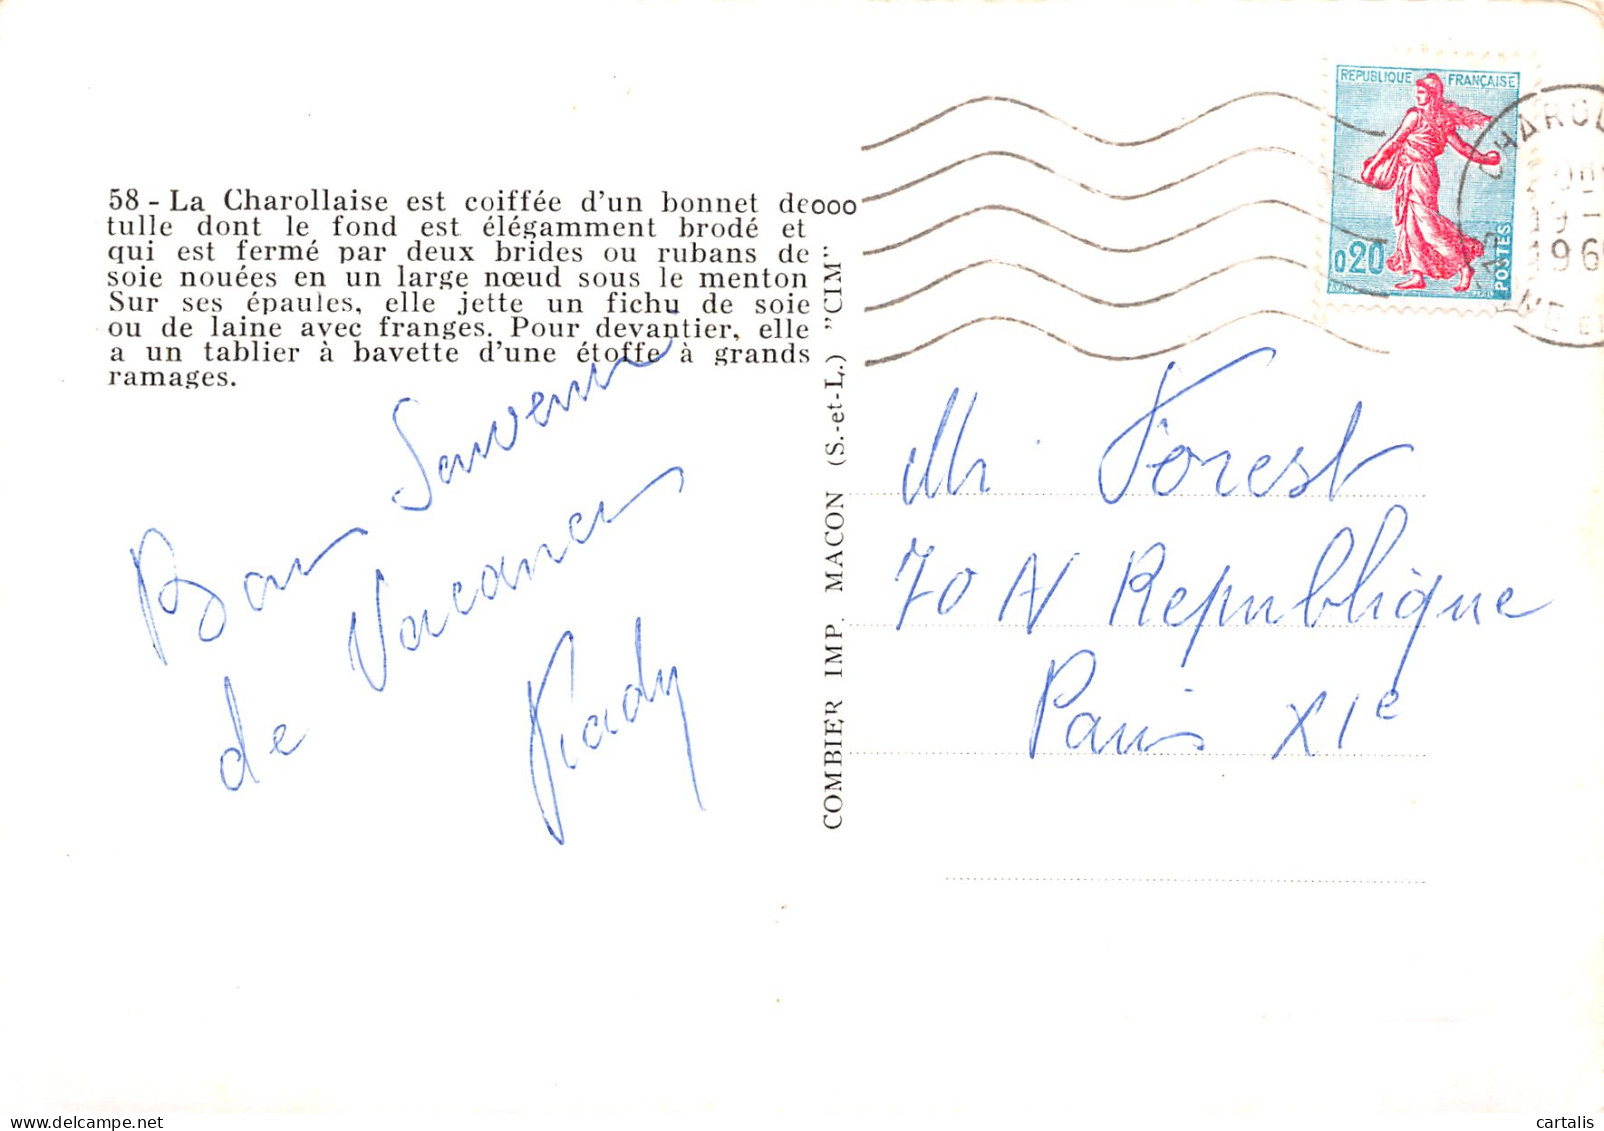 58 - La Charollaise est coiffée d'un bonnet de
tulle dont le fond est élégamment brodé et
qui est fermé par deux brides ou rubans de
soie nouées en un large nœud sous le menton
Sur ses épaules, elle jette un fichu de soie
ou de laine avec franges. Pour devantier, elle
a un tablier à bavette d'une étoffe à grands
ramages.
ooo
Bon Souvenir
de Vacances
COMBIER IMP. MACON (S.-et-L.) "CIM"
REPUBLIQUE FRANÇAISE
0,20
POSTES
CHAROL
19 -
196
NE et
Mr Forest
70 Av Republique
Paris XIe
cartalis